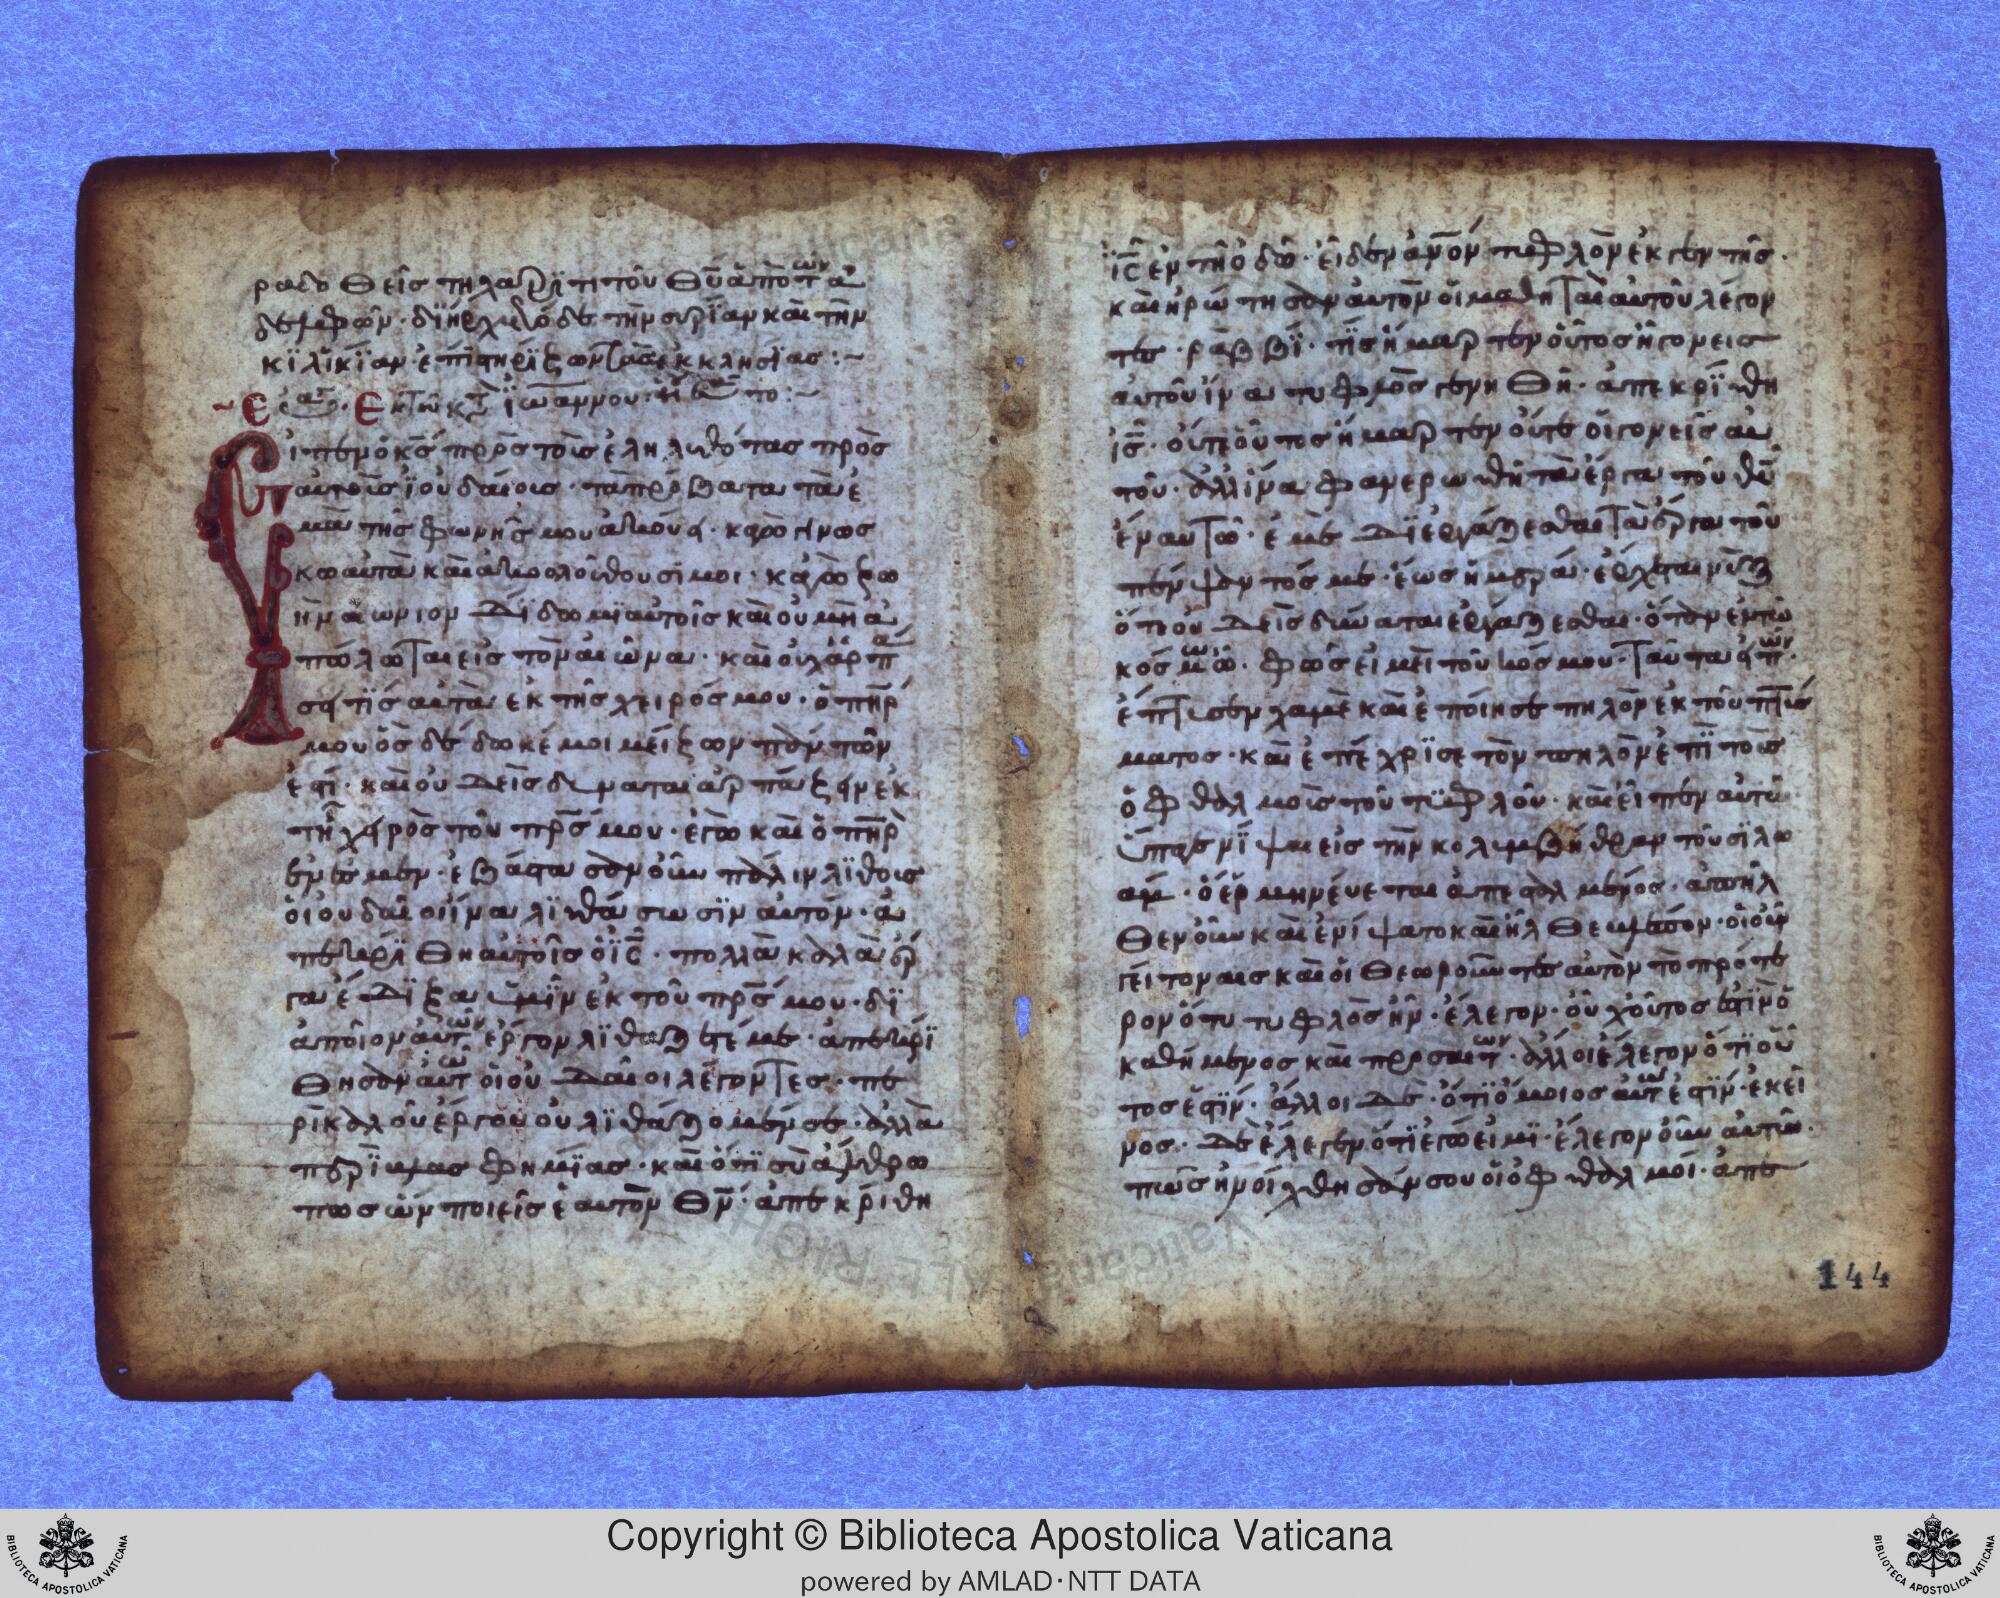 ραδοθεὶς τῆ χάριτι τοῦ θῦ ἀπὸ τῶν ἀ
δελφῶν · διήρχετο δὲ τὴν συρίαν καὶ τὴν
κϊλϊκΐαν · ἐπϊστηρΐζων τὰς ἐκκλησΐας :~
Ἐκ τοῦ κτ ϊωάννου
εἶπεν ὁ κς πρὸς τοὺς ἐληλυθότας πρὸς
αὐτοὺς ϊουδαίοις · τὰ πρόβατα τὰ ἐ
μὰ τῆς φωνῆς μου ἀκούει · καγὼ γινώσ
κω αὐτὰ καὶ ἀκολούθουσί μοι · καγὼ ζω
ὴν αἰώνιον δΐδωμϊ αὐτοῖς καὶ οὐ μὴ ἀ
πόλωται εἰς τὸν αἰῶνα · καὶ οὐχ ἁρπά
σει τὶς αὐτὰ ἐκ τῆς χειρός μου · ὁ πὴρ
μου ὃς δέδωκέ μοι μείζων πάντων
ἐστί · καὶ οὐδεὶς δύναται ἁρπάζειν ἐκ
τῆς χειρὸς τοῦ πρς μου · ἐγὼ καὶ ὁ πὴρ
ἕν ἐσμεν · ἐβάστασαν οὖν πάλιν λΐθους
οἱ ουδαῖοι ἵνα λϊθάσωσϊν αὐτόν · ἀ
πεκρΐθη αὐτοῖς ὁ ϊς · πολλὰ καλὰ ἔρ
γα ἔδϊξα ὑμῖν ἐκ τοῦ πρς μου · δϊ
ἀποῖον αὐτῶν ἔργον λϊθάζετέ με · ἀπεκρΐ
θησαν αὐτῶ οἱ ουδαῖοι λέγοντες · πε
ρὶ καλοῦ ἔργου οὐ λϊθάζομέν σε · ἀλλὰ
περὶ βλασφημΐας · καὶ ὅτϊ σὺ ἄνθρω
πος ὢν ποιεῖς ἑαυτὸν θν · ἀπεκρίθη
ϊς ἐν τῆ ὁδῶ · εἶδεν ἀνον τυφλὸν ἐκ γενετῆς ·
καὶ ηρώτησαν αὐτὸν οἱ μαθηταὶ αὐτοῦ λέγον
τες · ραββΐ · τΐς ἥμαρτεν οὗτος ἢ γονεις
αὐτοῦ ἵνα τυφλὸς γενηθῆ · ἀπεκρΐθη
ις · οὔτε οὗτος ἥμαρτεν οὔτε οἱ γονεῖς αυ
τοῦ · ἀλλ ἵνα φανερωθῆ τὰ ἔργα τοῦ θυ
ἐν αυτῶ · ἐμὲ δΐ ἐργάζεσθαι τὰ ἔργα τοῦ
πέμψαντός με · ἕως ἡμέρα · ἔρχεται νὺξ
ὅτι οὐδεὶς δύναται ἐργάζεσθαι · ὅταν ἐν τῶ
κόσμω ὦ · φῶς εἰμὶ τοῦ κόσμου · ταῦτα εἰπών ·
ἔπτυσεν χαμὲ καὶ ἐποίησε πηλὸν ἐκ τοῦ πτύσ
ματος · καὶ ἐπέχρϊσε τὸν πηλὸν ἐπῒ τοὺς
ὀφθαλμοὺς τοῦ τυφλοῦ · καὶ εἶπεν αὐτῶ
ὕπαγε νΐψαι εἰς τὴν κολυμβήθραν τοῦ σϊλω
άμ · ὃ ἑρμηνέυεται ἀπεσταλμένος · ἀπῆλ
θεν οὖν καὶ ἐνίψατο καὶ ἦλθε βλέπον · οἱ οὖν
γείτοναις καὶ οἱ θεωροῦντες αὐτὸν τὸ πρότε
ρον ὅτι τυφλὸς ἦν · ἔλεγον · οὐχ οὗτος ἐστῒν ὁ
καθήμενος καὶ προσαιτῶν · ἄλλοι ἔλεγον ὅτϊ οὗ
τος ἐστΐν · ἄλλοι δὲ · ὅτϊ ὅμοιος αὐτῶ ἐστΐν · ἐκεῖ
νος · δὲ ἔλεγεν ὅτϊ ἐγώ εἰμϊ · ἔλεγον οὖν αὐτῶ ·
πῶς ἠνοίχθησάν σου οἱ ὀφθαλμοί · ἀπε
144
Copyright © Biblioteca Apostolica Vaticana
powered by AMLAD·NTT DATA
BIBLIOTECA APOSTOLICA VATICANA
BIBLIOTECA APOSTOLICA VATICANA